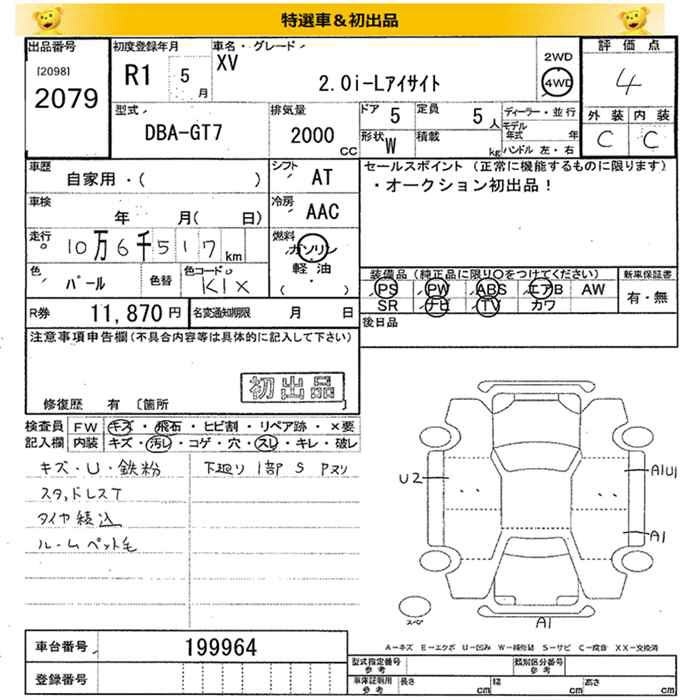 特選車&初出品
出品番号
[2098]
2079
初度登録年月
R1 5月
車名・グレード
XV
2.0i-Lアイサイト
2WD
4WD
評価点
4
外装 内装
C C
型式
DBA-GT7
排気量
2000 CC
ドア 5
定員 5人
形状 W
積載 kg
ディーラー・並行
モデル年式 年
ハンドル 左・右
車歴
自家用・( )
シフト AT
セールスポイント (正常に機能するものに限ります)
・オークション初出品!
車検
年 月( 日)
冷房 AAC
走行 10万6千517km
燃料 ガソリン
軽油・
( )
色 パール
色替
色コード K1X
装備品 (純正品に限り○をつけてください)
PS PW ABS エアB AW
SR ナビ TV カワ
新車保証書
有・無
R券 11,870円
名変通知期限 月 日
後日品
注意事項申告欄(不具合内容等は具体的に記入して下さい)
初出品
修復歴 有 [箇所 ]
検査員記入欄
FW キズ・飛石・ヒビ割・リペア跡・×要
内装 キズ・汚し・コゲ・穴・スレ・キレ・破レ
キズ・U・鉄粉
下廻り1部S Pヌリ
スタッドレスT
タイヤ積込
ルームペット毛
U2
A1U1
A1
A1
スペア
A-キズ E-エクボ U-凹み W-補修跡 S-サビ C-腐食 XX-交換済
車台番号 199964
登録番号
型式指定番号 参考
類別区分番号 参考
車庫証明用 参考
長さ cm
幅 cm
高さ cm